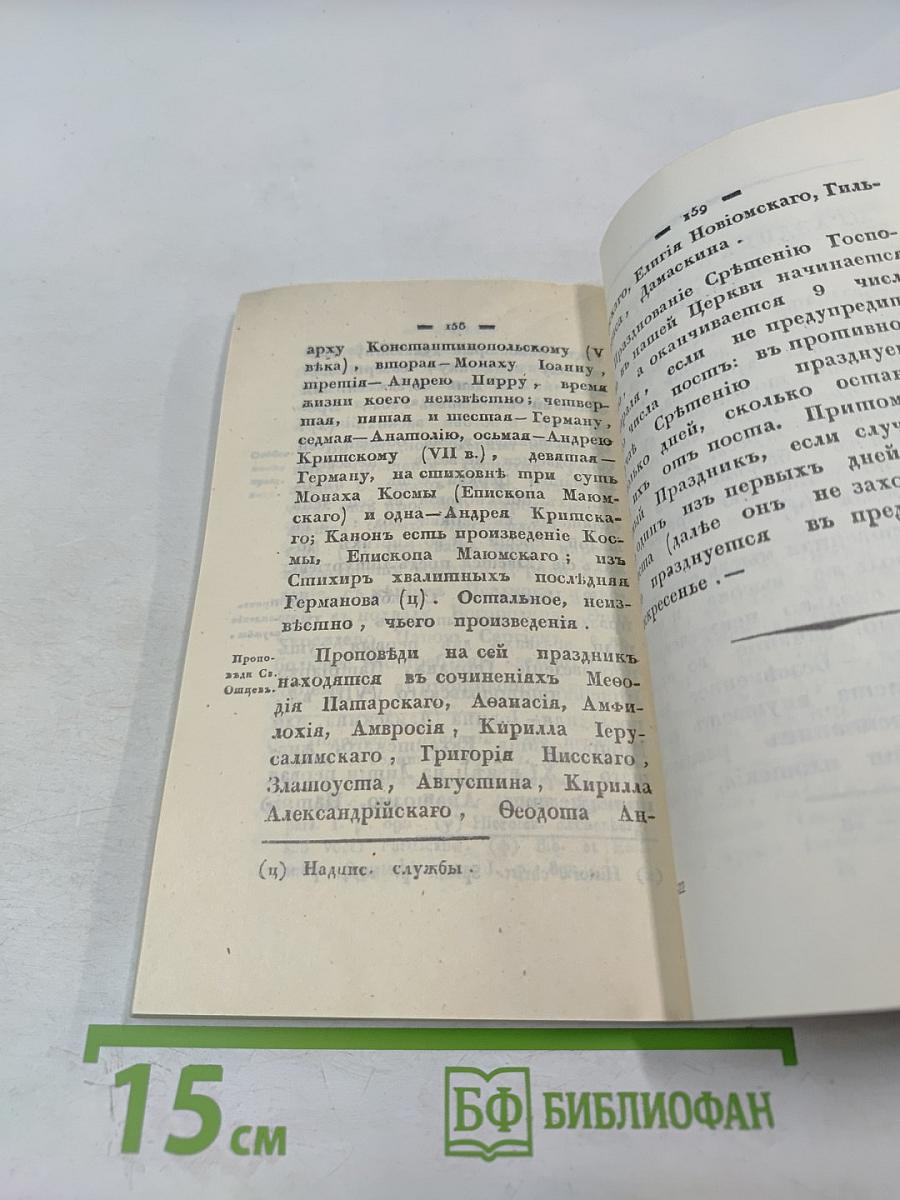 — 158 —
арху Константинопольскому (V
вѣка), вторая—Монаху Іоанну,
третія—Андрею Пирру, время
жизни коего неизвѣстно; четвер-
тая, пятая и шестая—Герману,
седмая—Анатолію, осьмая—Андрею
Критскому (VII в.), девятая—
Герману, на стиховнѣ три суть
Монаха Космы (Епископа Маюм-
скаго) и одна—Андрея Критска-
го; Канонъ есть произведеніе Кос-
мы, Епископа Маюмскаго; изъ
Стихиръ хвалитныхъ послѣдняя
Германова (ц). Остальное, неиз-
вѣстно, чьего произведенія.
Пропо-
вѣди Св.
Отцевъ.
Проповѣди на сей праздникъ
находятся въ сочиненіяхъ Меѳо-
дія Патарскаго, Аѳанасія, Амфи-
лохія, Амвросія, Кирилла Іеру-
салимскаго, Григорія Нисскаго,
Златоуста, Августина, Кирилла
Александрійскаго, Ѳеодота Ан-
(ц) Надпис. службы.
— 159 —
Елигія Новіомскаго, Гиль-
Дамаскина.
Празднованіе Срѣтенію Госпо-
въ нашей Церкви начинается
а оканчивается 9 числ
если не предупредит
числа постъ: въ противно
Срѣтенію празднуе
дней, сколько остан
отъ поста. Притом
Праздникъ, если случ
изъ первыхъ дней
(далѣе онъ не захо
празднуется въ пред
кресенье.—
15 см
БФ БИБЛИОФАН